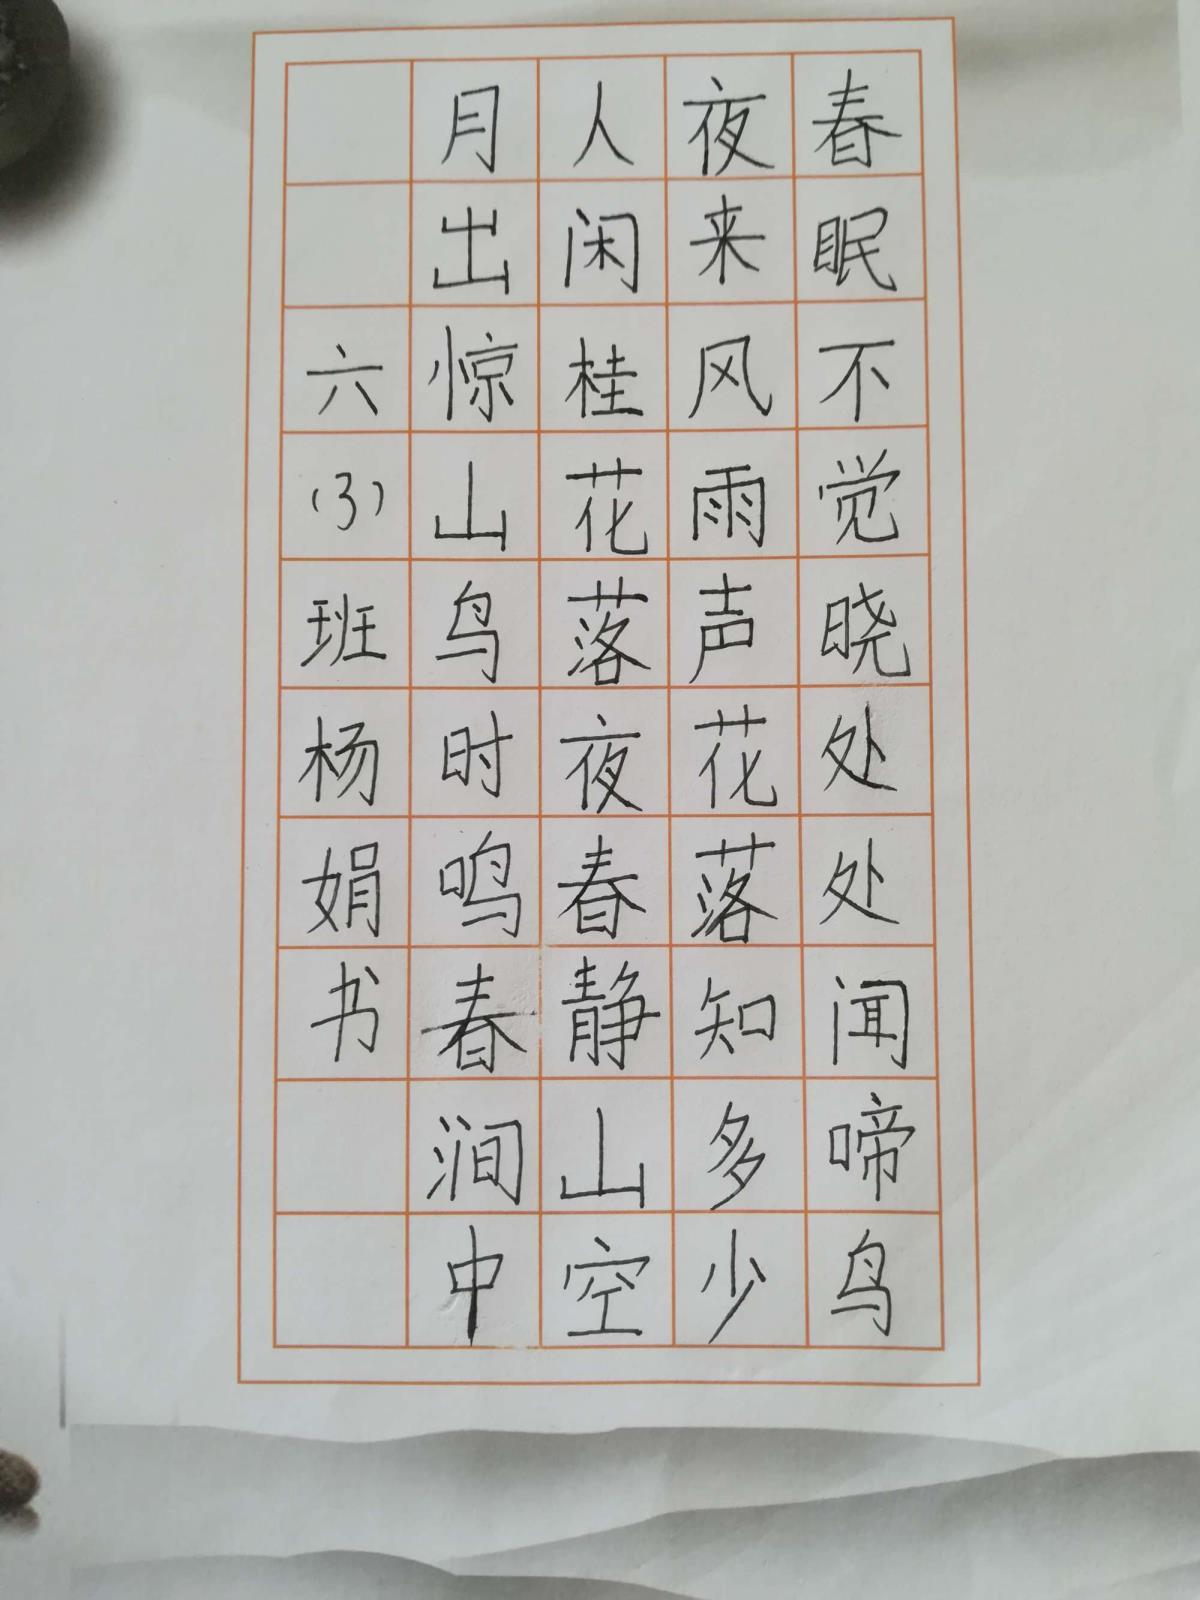 春眠不觉晓处处闻啼鸟
夜来风雨声花落知多少
人闲桂花落夜春静山空
月出惊山鸟时鸣春涧中
六(3)班杨娟书